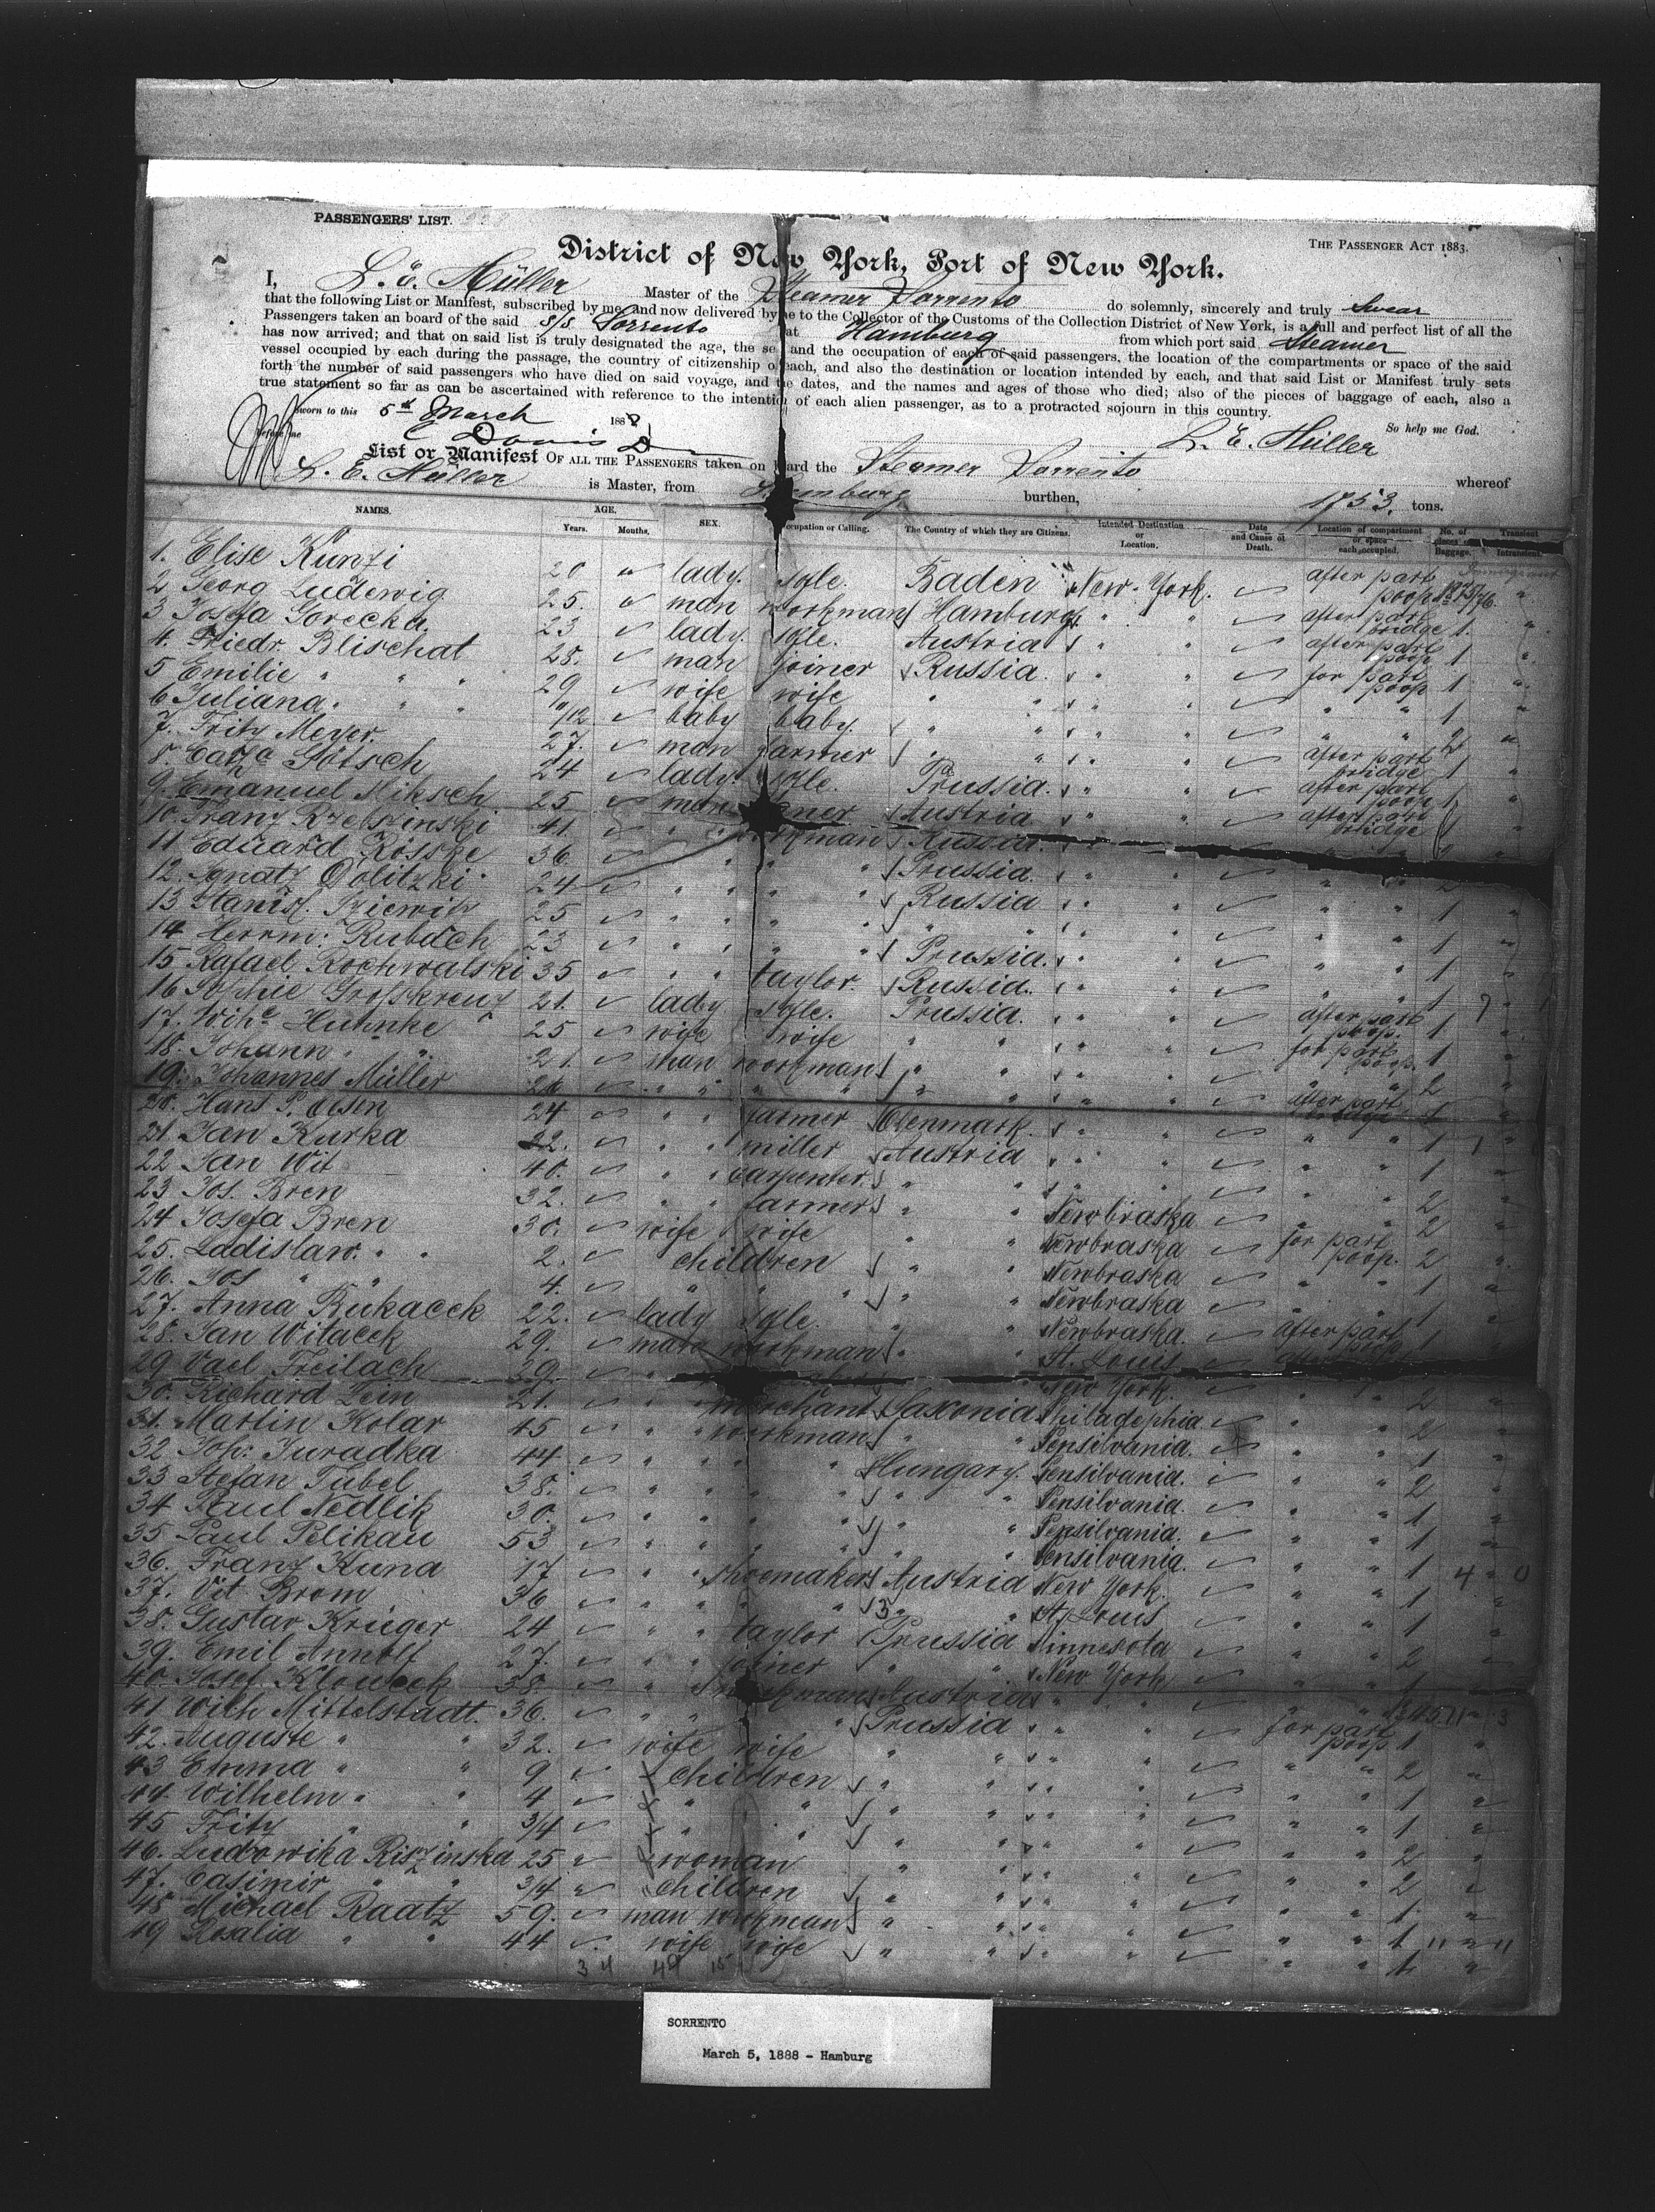 PASSENGERS' LIST.
THE PASSENGER ACT 1883.
District of New York, Port of New York.
I, L. E. Müller Master of the Steamer Sorrento do solemnly, sincerely and truly Swear
that the following List or Manifest, subscribed by me and now delivered by me to the Collector of the Customs of the Collection District of New York, is a full and perfect list of all the
Passengers taken on board of the said S/S. Sorrento at Hamburg from which port said Steamer
has now arrived; and that on said list is truly designated the age, the sex and the occupation of each of said passengers, the location of the compartments or space of the said
vessel occupied by each during the passage, the country of citizenship of each, and also the destination or location intended by each, and that said List or Manifest truly sets
forth the number of said passengers who have died on said voyage, and the dates, and the names and ages of those who died; also of the pieces of baggage of each, also a
true statement so far as can be ascertained with reference to the intention of each alien passenger, as to a protracted sojourn in this country.
Sworn to this 5th March 1888 So help me God.
before me L. E. Müller
List or Manifest OF ALL THE PASSENGERS taken on board the Steamer Sorrento whereof
L. E. Müller is Master, from Hamburg burthen, 1753. tons.
NAMES. AGE. Years. Months. SEX. Occupation or Calling. The Country of which they are Citizens. Intended Destination or Location. Date and Cause of Death. Location of compartment or space each occupied. No. of pieces of Baggage. Transient
1. Elise Künzi 20 " lady. sgle. Baden New-York. after part poop
2 Georg Ludewig 25. " man workman Hamburg " " after part bridge 1.
3 Josefa Gorecka 23 lady. sgle. Austria " " after part poop 1 "
4. Friedr. Blischat 28. man joiner Russia. " " for part poop 1 "
5 Emilie " " " 29 wife wife " " " " " " 1 "
6 Juliana " " " /12. baby baby. " " " " " " 2 "
7. Fritz Meyer. 27. man farmer " " " " after part bridge 1 "
8. Götsch 24 lady. sgle. Prussia. " " after part poop 1 "
9. Emanuel Miksch 25 man Austria " " after part bridge
10. Franz 41. " " workman Russia.
11 Eduard Röske 36 " " " " Prussia. " " " " 2
12. Ignatz 24 " " " " Russia " " " " 1 "
13 Stanisl. 25 " " " " " " " " " " 1 "
14 Herrm: 23 " " " " Prussia. " " " " 1 "
15 Rafael Rochwalski 35 " " taylor. Russia. " " " " 1 "
16 Grosskreuz 21. lady sgle. Prussia. " " after part poop. 1 "
17. Huhnke 25 wife wife " " " " for part poop. 1
18. Johann " " 21. man workman " " " " " " 2 "
19. Johannes Müller 26 " " " " " " " " after part bridge 1 "
20. Hans P. Olsen 24 " " farmer Denmark. " " " " 1 "
21. Jan Kurka 22. " " miller Austria " " " " 1 "
22 Jan Wit 40. " " carpenter. " " " " " " 2 "
23 Jos. Bren 32. " " farmer " " Newbraska 2 "
24 Josefa Bren 30. wife wife " " Newbraska for part poop. 2 "
25. Ladislaw. " " 2. children " " Newbraska " " 1 "
26. Jos " " 4. " " " " Newbraska " " 1 "
27. Anna Bukacek 22. lady sgle. " " Newbraska after part poop 1 "
28. Jan Witacek 29. man workman " " St. Louis
29 Freilach 39. New York. " " 2 "
30. Richard Lein 21. " " merchant Saxonia Philadephia " " 2 "
31. Martin Kolar 45 " " workman " " Pensilvania. " " 1 "
32. Joh: Juradka 44 " " " " Hungary. Pensilvania. " " 2 "
33 Stefan Tubel 38. " " " " " " Pensilvania. " " 1 "
34 Paul Nedlik 30. " " " " " " Pensilvania. " " 1 "
35 Paul Pelikau 53 " " " " " " Pensilvania. " " 1 4 " 0
36. Franz Kuna 17 " " shoemaker Austria New York. " " 1 "
37. Vit Brom 36 " " " " " " St. Louis " " 1 "
38. Gustav Krüger 24 " " taylor Prussia Minnesota " " 2 "
39. Emil 27. " " joiner " " New York " " 1 "
40. Josef 38. " " workman Austria " "
41 Wilh Mittelstadt. 36. " " " " Prussia " " for part poop 1 "
42. Auguste " " 32. wife wife " " " " " " 2 "
43 Emma " " 9 children " " " " " " 1 "
44 Wilhelm " " 4 " " " " " " " " 1 "
45 Fritz " " 3/4 " " " " " " " " 2 "
46. Ludowika Riszinska 25 woman " " " " " " 2 "
47. Casimir " " 3/4 children " " " " " " 1 "
48 Michael Raatz 59. man workman " " " " " " 1 11 " 11
49 Rosalia " " 44 wife wife " " " " " " 1 "
34 49 15
SORRENTO
March 5, 1888 - Hamburg